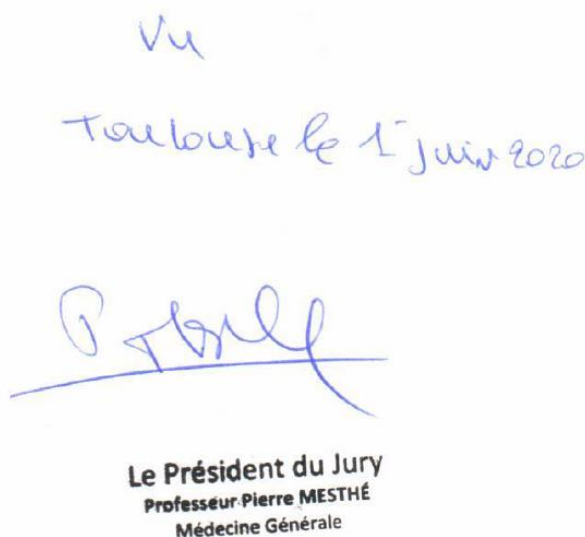 Vu
Toulouse le 1 juin 2020
Le Président du Jury
Professeur Pierre MESTHÉ
Médecine Générale